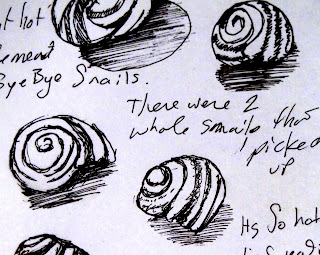 t hot
ement
Bye Bye Snails.
There were 2
whole snails that
I picked
up
Its So hot